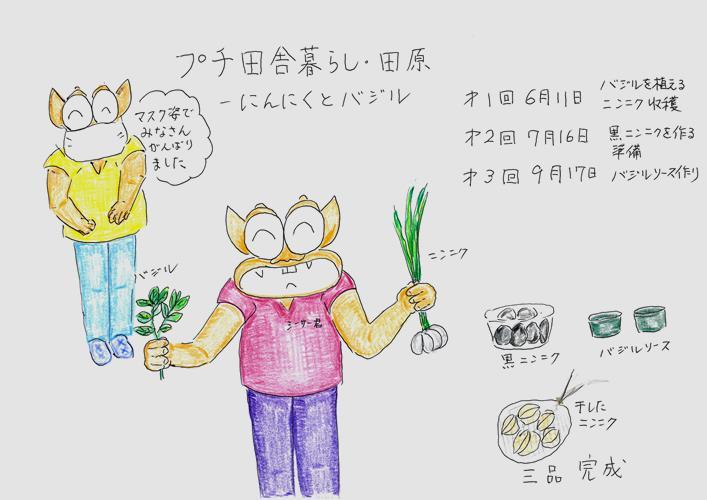 プチ田舎暮らし・田原
-にんにくとバジル
マスク姿で
みなさん
がんばり
ました
才1回 6月11日 バジルを植える
ニンニク収穫
才2回 7月16日 黒ニンニクを作る
準備
才3回 9月17日 バジルソース作り
バジル
ニンニク
シーサー君
黒ニンニク
バジルソース
干した
ニンニク
三品 完成